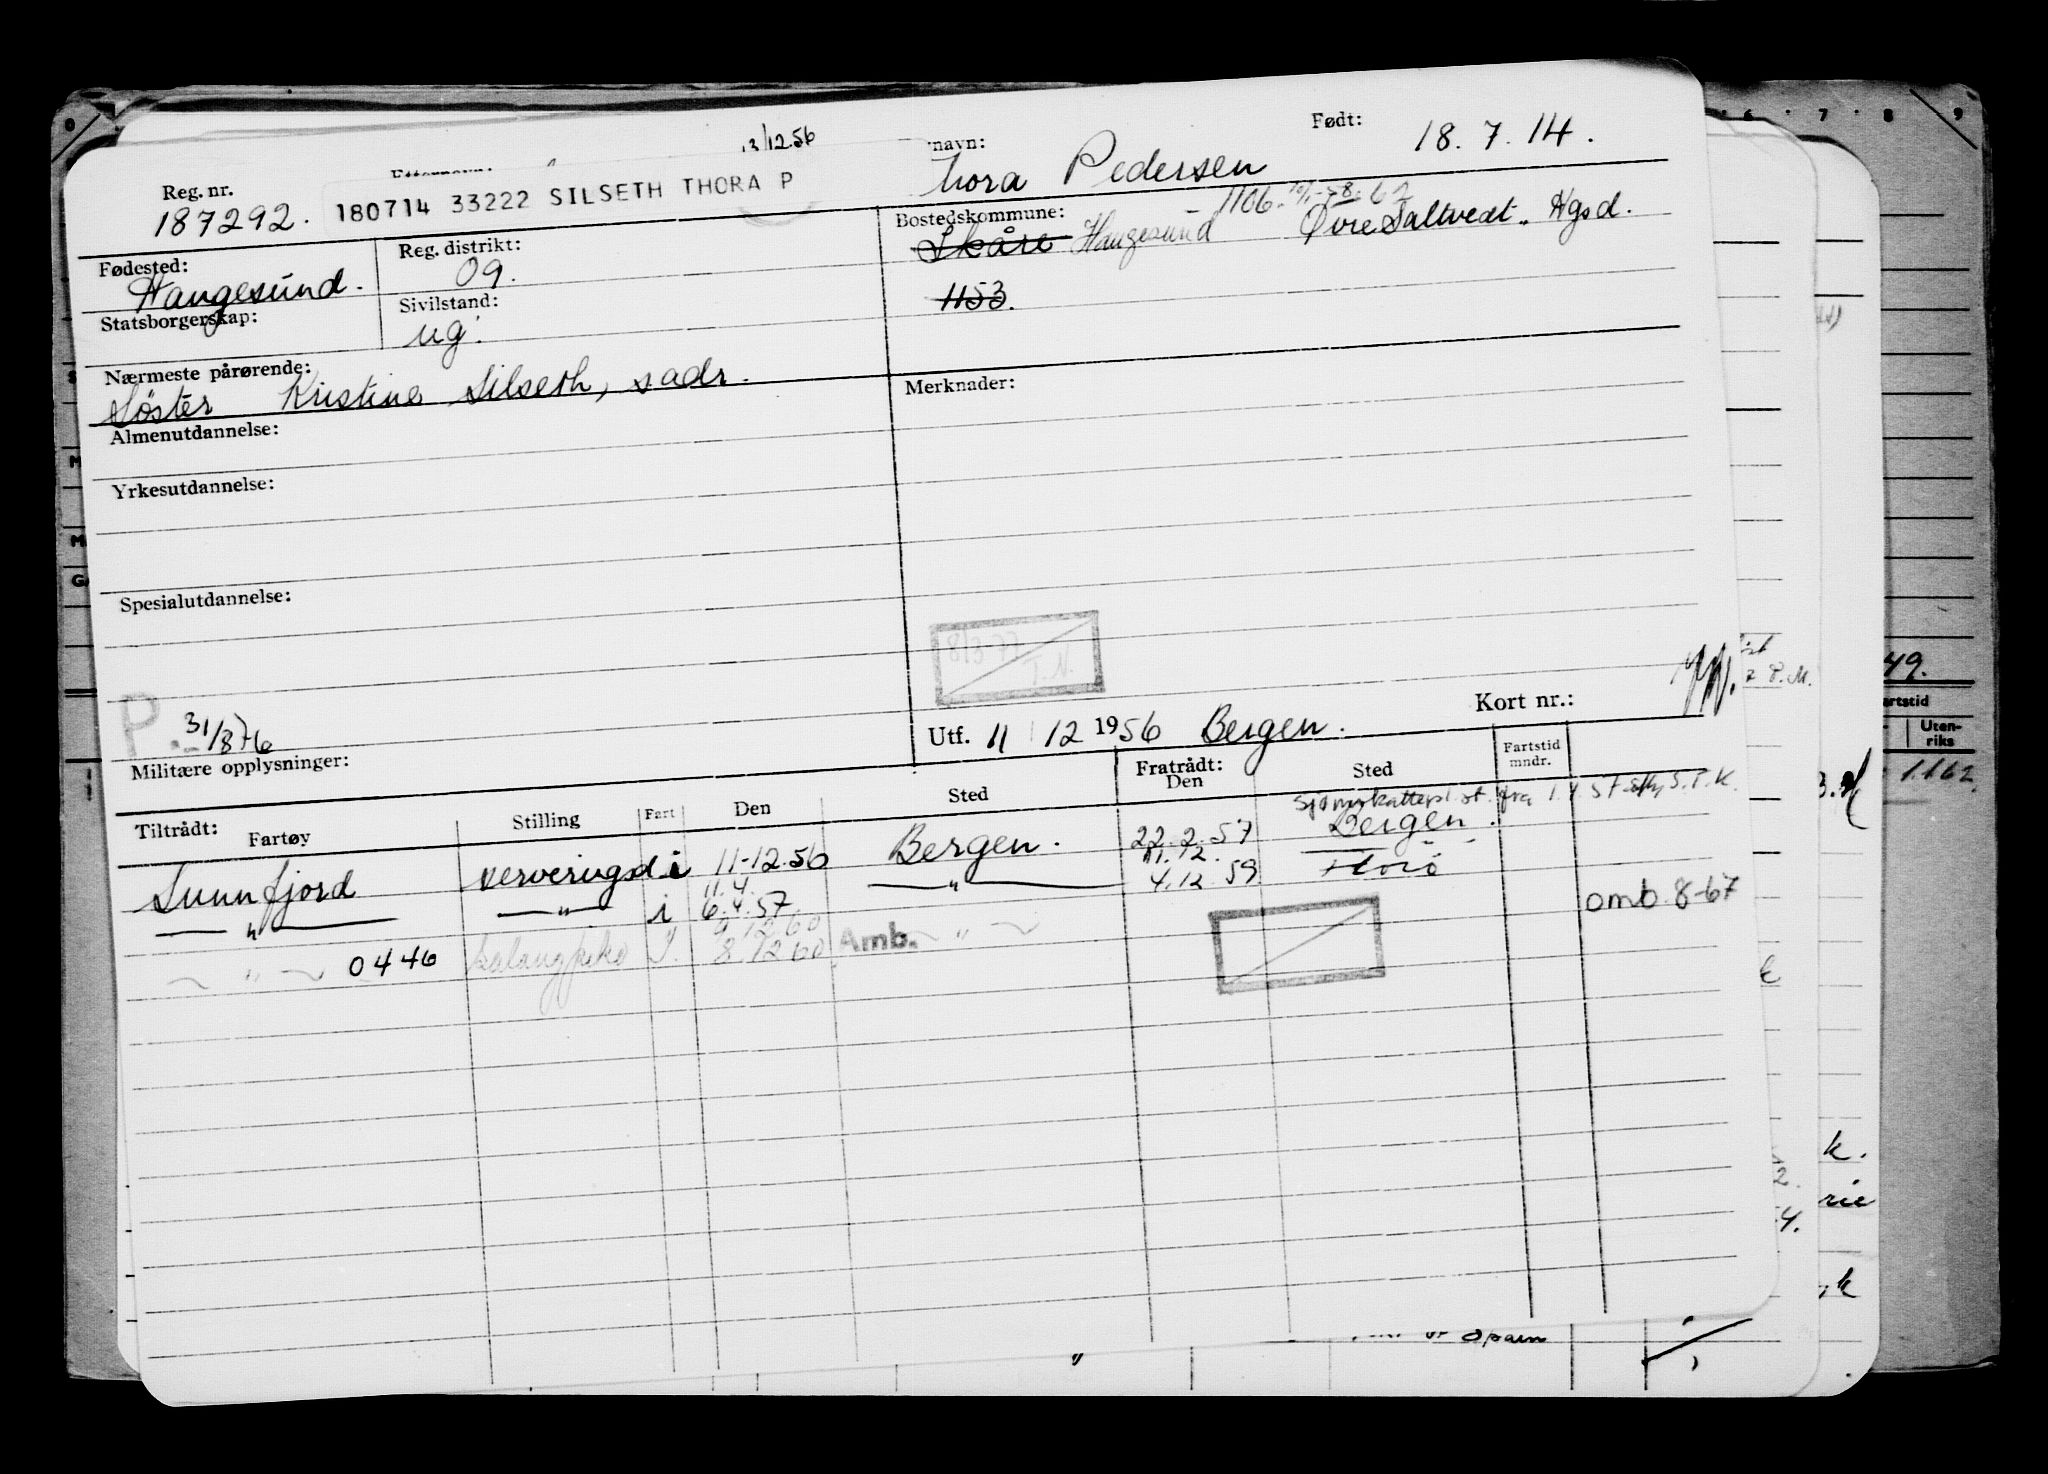 13/12.56
Født:
18.7.14.
Reg. nr.
187292.
180714 33222 SILSETH THORA P
navn:
Thora Pedersen
Fødested:
Haugesund.
Reg. distrikt:
09.
Bostedskommune:
Skåre Haugesund
1106.
Øvre Saltvedt. Hgsd.
1153.
Statsborgerskap:
Sivilstand:
ug.
Nærmeste pårørende:
Søster Kristine Silseth, sadr.
Merknader:
Almenutdannelse:
Yrkesutdannelse:
Spesialutdannelse:
8/3-77
T.N.
P.
31/8 76
Utf. 11 12 1956 Bergen.
Kort nr.:
Militære opplysninger:
Tiltrådt:
Fartøy
Stilling
Fart
Den
Sted
Fratrådt:
Den
Sted
Fartstid
mndr.
Sunnfjord
i
11-12.56
Bergen.
22.2.57
Bergen.
— " —
— " —
i
11.4.
6.4.57
— " —
11.12.
4.12.59
Florö
omb. 8-67
— " — 0446
9.12.60
8.12.60
Amb.
— " —
49.
Uten-
riks
1.162
6 7 8 9
k.
rie
k